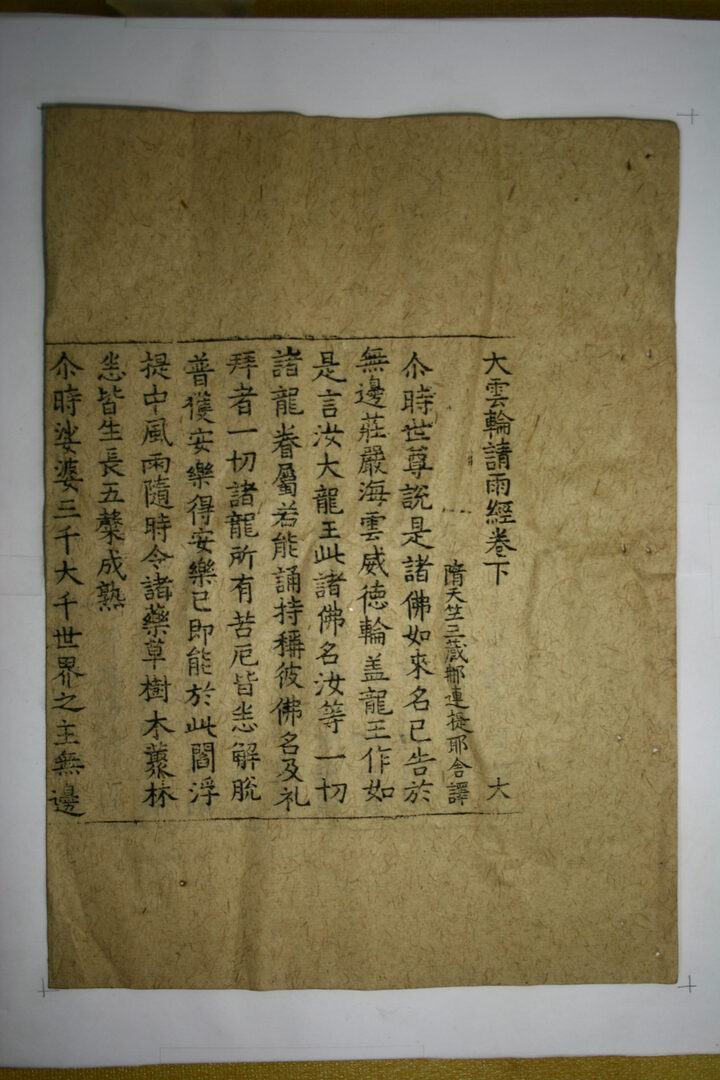 大雲輪請雨經卷下 大
隋天竺三藏那連提耶舍譯
尒時世尊說是諸佛如來名已告於
無邊莊嚴海雲威德輪盖龍王作如
是言汝大龍王此諸佛名汝等一切
諸龍眷屬若能誦持稱彼佛名及礼
拜者一切諸龍所有苦厄皆悉解脫
普獲安樂得安樂已即能於此閻浮
提中風雨隨時令諸藥草樹木藂林
悉皆生長五糓成熟
尒時娑婆三千大千世界之主無邊